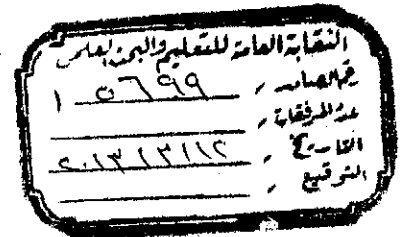 النقابة العامة للتعليم والبحث العلمى
رقم الصادر / ١٥٦٩٩
عدد المرفقات /
التاريخ /
التوقيع /